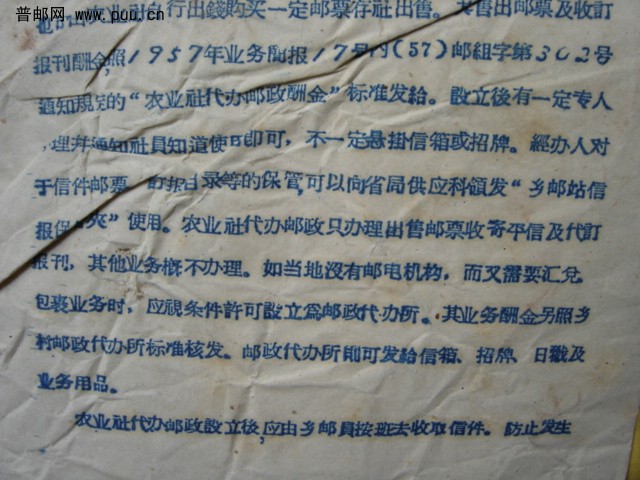 普邮网 www.puu.cn
也可由农业社自行出錢购买一定邮票存社出售。共售出邮票及收訂
报刊酬金,照1957年业务简报17号内(57)邮組字第302号
通知規定的“农业社代办邮政酬金”标准发給。設立後有一定专人
理并通知社員知道使用即可,不一定悬掛信箱或招牌。經办人对
于信件邮票 訂报目录等的保管,可以向省局供应科領发“乡邮站信
报保 夾”使用。农业社代办邮政只办理出售邮票收寄平信及代訂
报刊,其他业务概不办理。如当地沒有邮电机构,而又需要汇兑
包裹业务时,应視条件許可設立爲邮政代办所。其业务酬金另照乡
村邮政代办所标准核发。邮政代办所即可发給信箱、招牌、日戳及
业务用品。
农业社代办邮政設立後,应由乡邮員按班去收取信件。防止发生